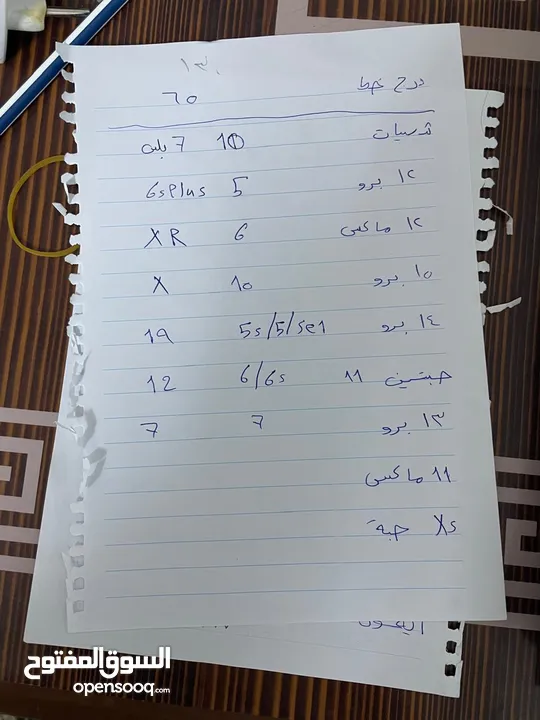 ١٣٠
درج خط ٦٥
ترسيات 10 7 بلس
١٢ برو 5 6sPlus
١٢ ماكس 6 XR
١٥ برو 10 X
١٤ برو 5s/5/Se1 19
حبتين 11 6/6s 12
١٣ برو 7 7
11 ماكس
Xs حبة
السوق المفتوح
opensooq.com